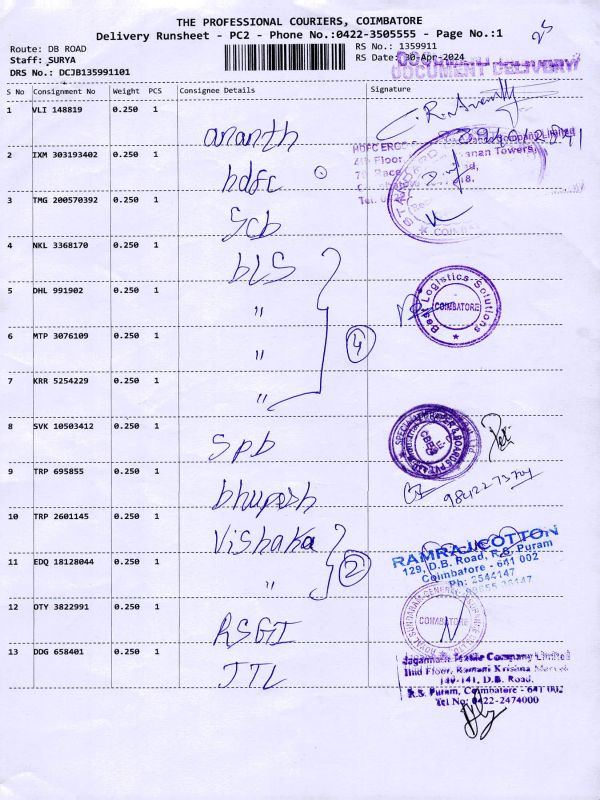 THE PROFESSIONAL COURIERS, COIMBATORE
Delivery Runsheet - PC2 - Phone No.:0422-3505555 - Page No.:1
Route: DB ROAD
Staff: SURYA
DRS No.: DCJB135991101
RS No.: 1359911
RS Date: 30-Apr-2024
DOCUMENT DELIVERY
S No Consignment No Weight PCS Consignee Details Signature
1 VLI 148819 0.250 1 ananth
2 IXM 303193402 0.250 1 hdfc
3 TMG 200570392 0.250 1 Scb
4 NKL 3368170 0.250 1 bLS
5 DHL 991902 0.250 1 "
6 MTP 3076109 0.250 1 "
4
7 KRR 5254229 0.250 1 "
Best Logistics Solutions
COIMBATORE
8 SVK 10503412 0.250 1 Spb
9 TRP 695855 0.250 1 bhupesh
10 TRP 2601145 0.250 1 Vishaka
11 EDQ 18128044 0.250 1 "
2
RAMRAJ COTTON
129, D.B. Road, R.S. Puram
Coimbatore - 641 002
Ph: 2544147
12 OTY 3822991 0.250 1 RSGI
COIMBATORE
13 DDG 658401 0.250 1 JTL
Jagannath Textile Company Limited
IIIrd Floor, Ramani Krishna
140-141, D.B. Road,
R.S. Puram, Coimbatore - 641 002
Tel No: 0422-2474000